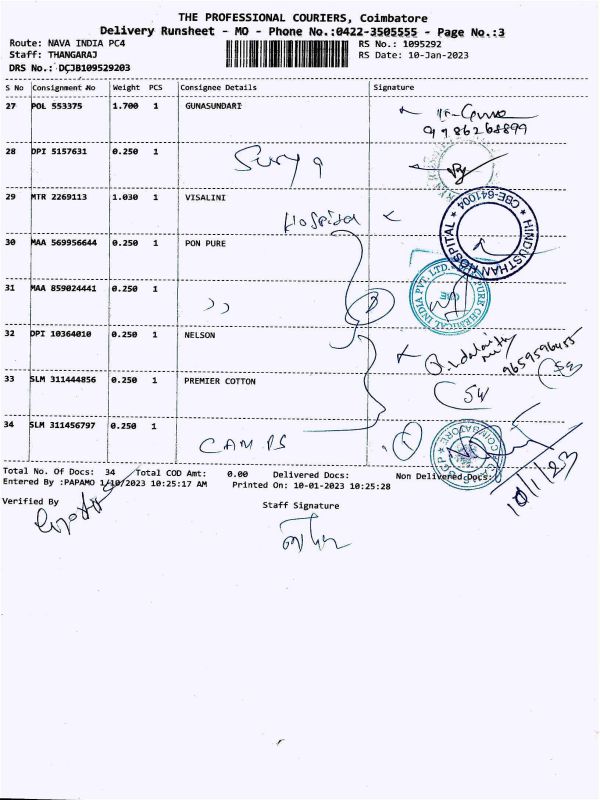 THE PROFESSIONAL COURIERS, Coimbatore
Delivery Runsheet - MO - Phone No.:0422-3505555 - Page No.:3
Route: NAVA INDIA PC4 RS No.: 1095292
Staff: THANGARAJ RS Date: 10-Jan-2023
DRS No.: DCJB109529203
S No Consignment No Weight PCS Consignee Details Signature
27 POL 553375 1.700 1 GUNASUNDARI
9986268899
28 DPI 5157631 0.250 1 Surya
29 MTR 2269113 1.030 1 VISALINI
Hospital
HINDUSTHAN HOSPITAL * CBE-641004 *
30 MAA 569956644 0.250 1 PON PURE
31 MAA 859024441 0.250 1 ))
PURE CHEMICAL INDIA PVT. LTD. CBE
32 DPI 10364010 0.250 1 NELSON
9659596455
33 SLM 311444856 0.250 1 PREMIER COTTON
34 SLM 311456797 0.250 1 CAMPS
COIMBATORE
Total No. Of Docs: 34 Total COD Amt: 0.00 Delivered Docs: Non Delivered Docs:
Entered By :PAPAMO 1/10/2023 10:25:17 AM Printed On: 10-01-2023 10:25:28
10/1/23
Verified By Staff Signature